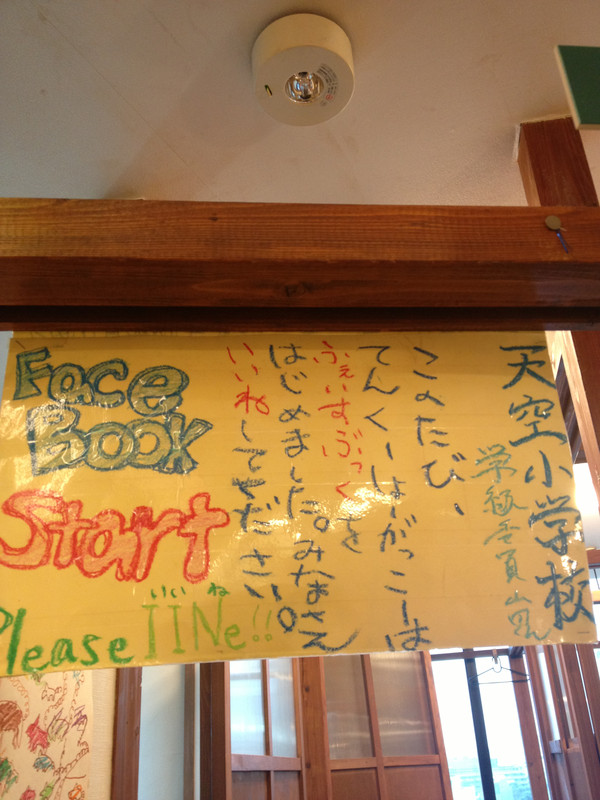 天空小学校
学級委員
このたび、
てんくーしょーがっこーは
ふぇいすぶっくを
はじめました。みなさん
いいねしてください。
FaCe
BOOK
Start
いいね
Please IINe!!